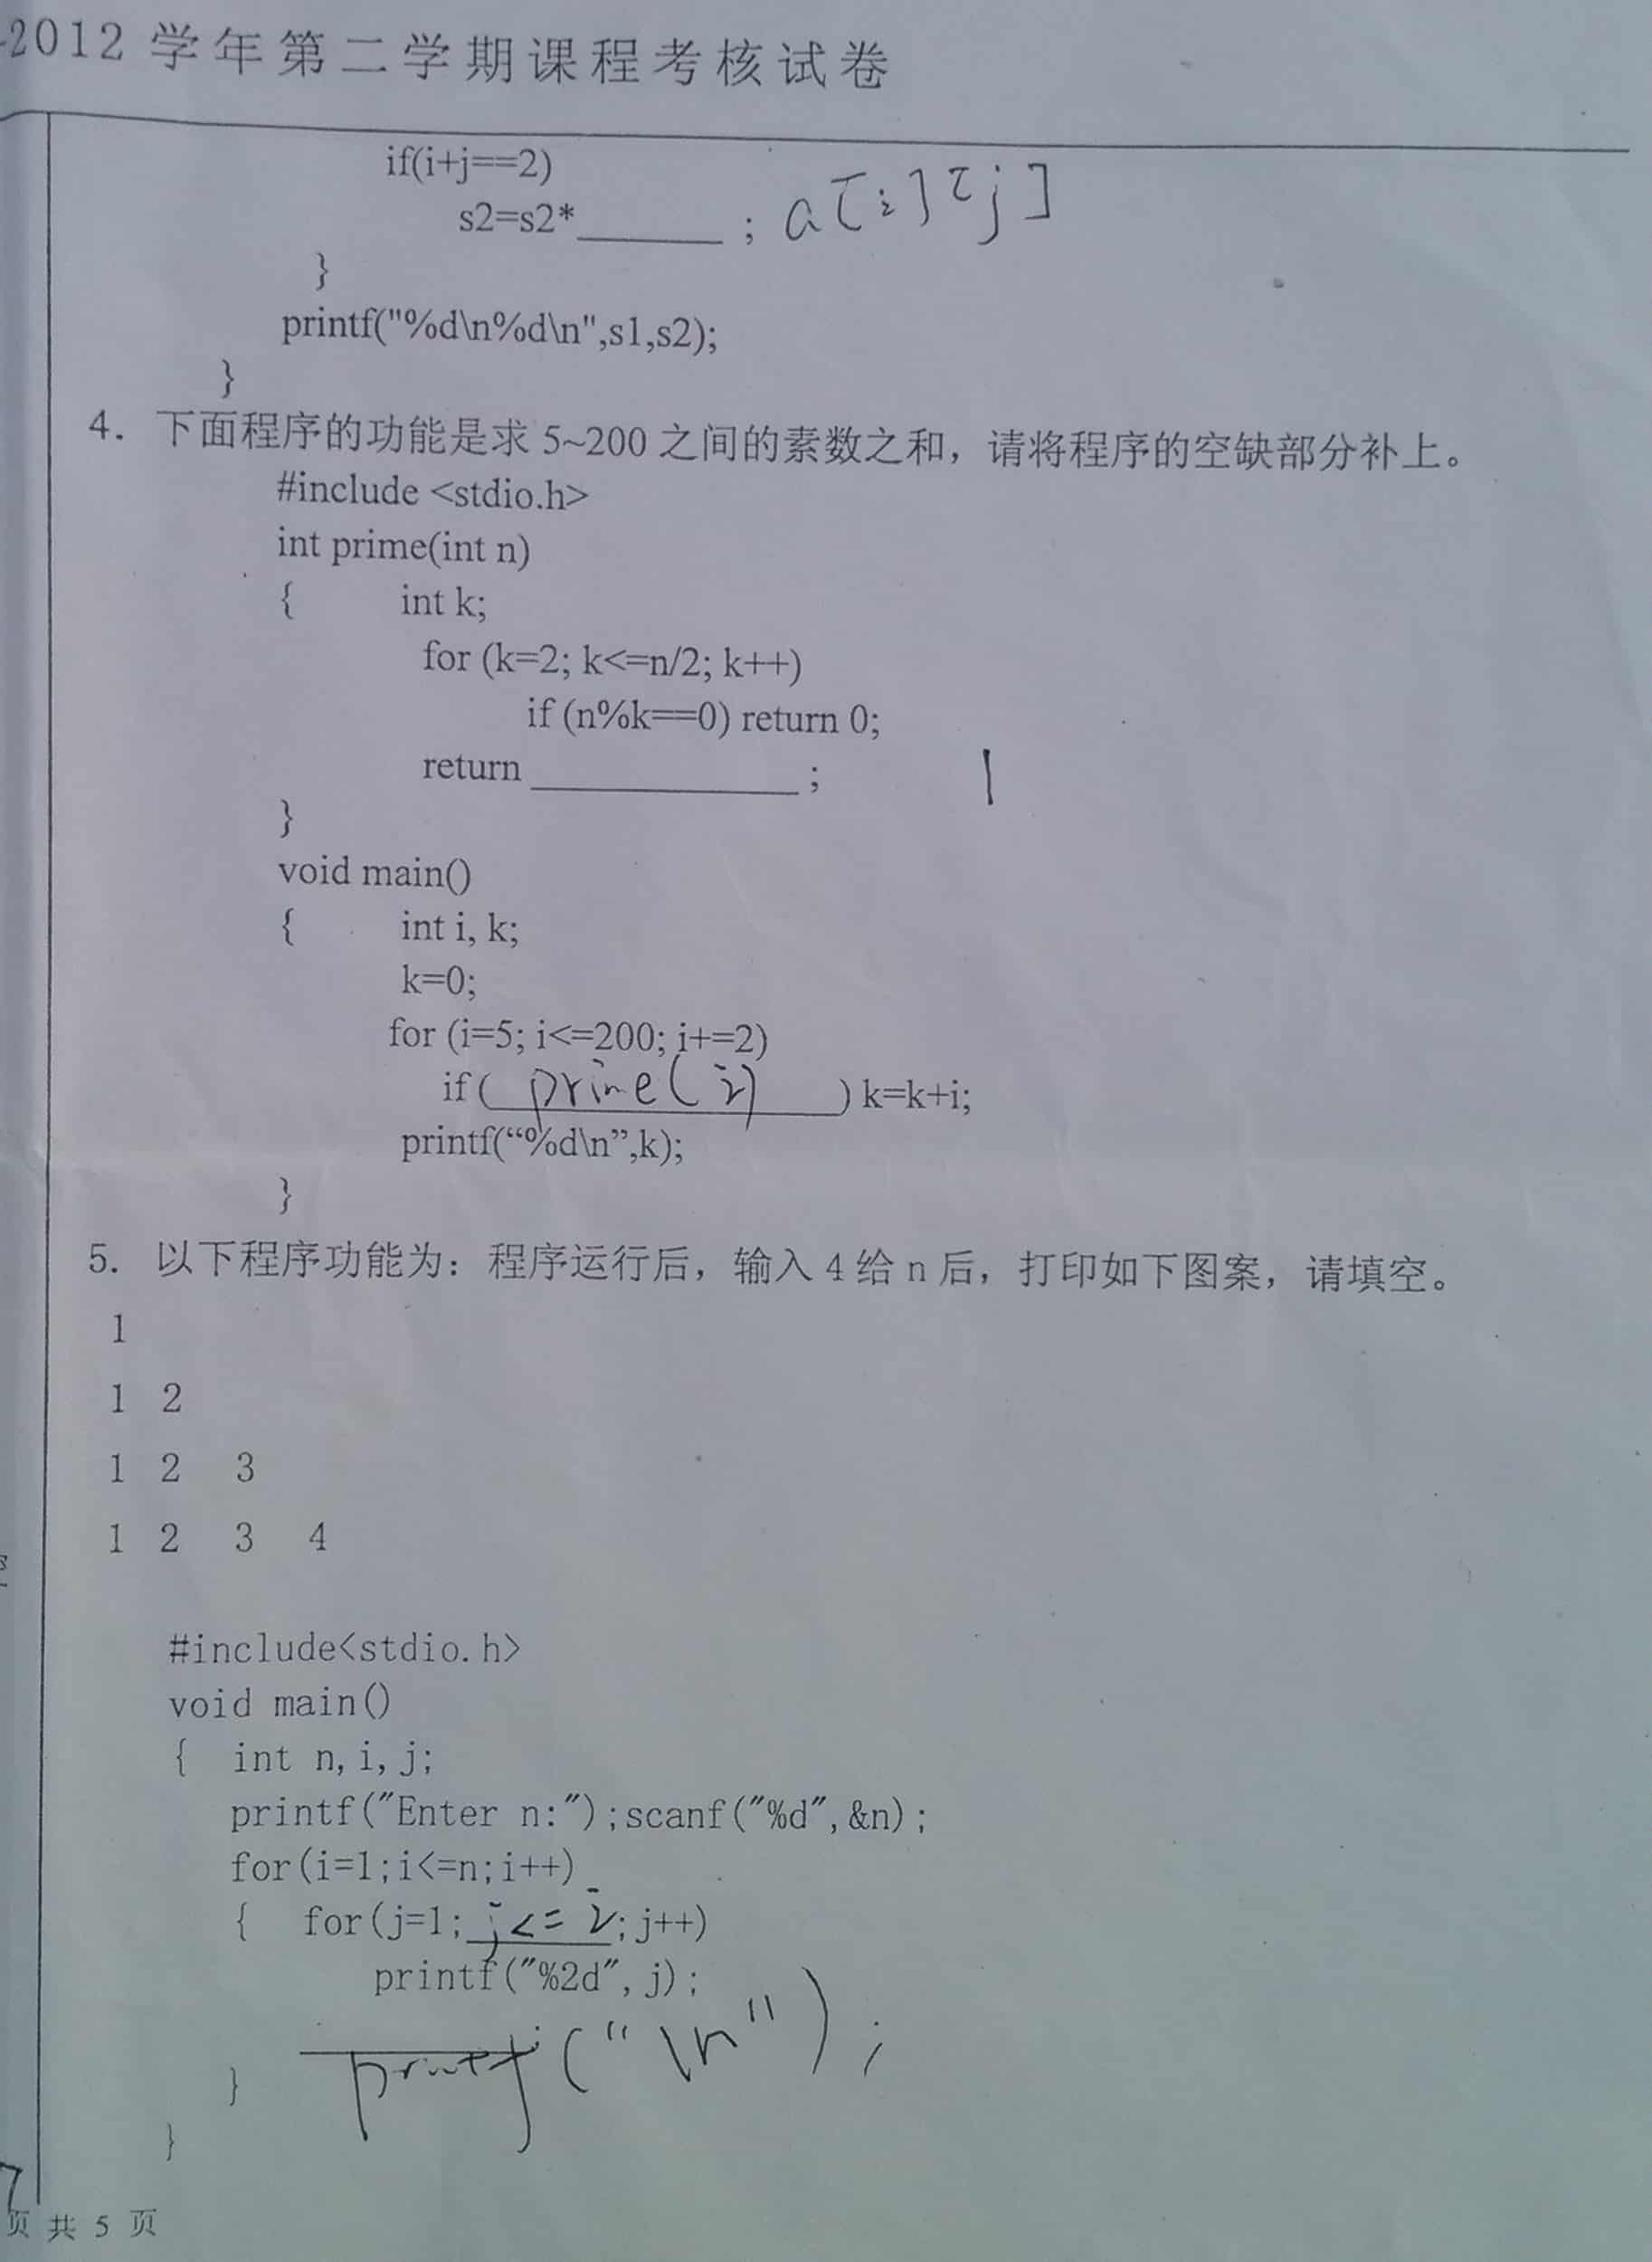 -2012学年第二学期课程考核试卷
if(i+j==2)
s2=s2*______ ; a[i][j]
}
printf("%d\n%d\n",s1,s2);
}
4. 下面程序的功能是求 5~200 之间的素数之和，请将程序的空缺部分补上。
#include <stdio.h>
int prime(int n)
{ int k;
for (k=2; k<=n/2; k++)
if (n%k==0) return 0;
return ____________ ; 1
}
void main()
{ int i, k;
k=0;
for (i=5; i<=200; i+=2)
if ( prime(i) ) k=k+i;
printf(“%d\n”,k);
}
5. 以下程序功能为：程序运行后，输入 4 给 n 后，打印如下图案，请填空。
1
1 2
1 2 3
1 2 3 4
#include<stdio.h>
void main()
{ int n,i,j;
printf("Enter n:");scanf("%d",&n);
for(i=1;i<=n;i++)
{ for(j=1; j<=i ;j++)
printf("%2d",j);
printf("\n");
}
}
页 共 5 页